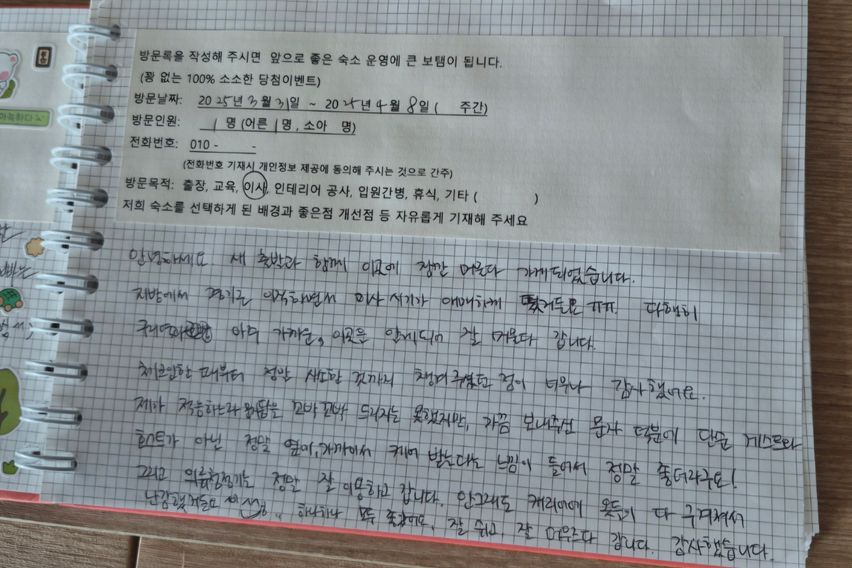 방문록을 작성해 주시면 앞으로 좋은 숙소 운영에 큰 보탬이 됩니다.
(꽝 없는 100% 소소한 당첨이벤트)
방문날짜: 2025년 3월 31일 ~ 2025년 4월 8일 ( 주간)
방문인원: 1 명 (어른 1 명, 소아 명)
전화번호: 010 - -
(전화번호 기재시 개인정보 제공에 동의해 주시는 것으로 간주)
방문목적: 출장, 교육, 이사, 인테리어 공사, 입원간병, 휴식, 기타 ( )
저희 숙소를 선택하게 된 배경과 좋은점 개선점 등 자유롭게 기재해 주세요
안녕하세요. 새 출발과 함께 이곳에 잠깐 머물다 가게되었습니다.
지방에서 경기로 이직하면서 이사 시기가 애매하게 떴거든요 ㅠㅠ. 다행히
아주 가까운, 이곳을 알게되어 잘 머물다 갑니다.
체크인한 때부터 정말 사소한 것까지 챙겨주셨던 점이 너무나 감사했어요.
제가 적응하느라 답을 꼬박꼬박 드리지는 못했지만, 가끔 보내주신 문자 덕분에 단순 게스트와
호스트가 아닌 정말 옆에,가까이서 케어 받는다는 느낌이 들어서 정말 좋더라구요!
그리고 정말 잘 이용하고 갑니다. 안그래도 캐리어에 옷들이 다 구겨져서
난감했거든요 하나하나 모두 좋았어요, 잘 쉬고 잘 머무르다 갑니다. 감사했습니다.